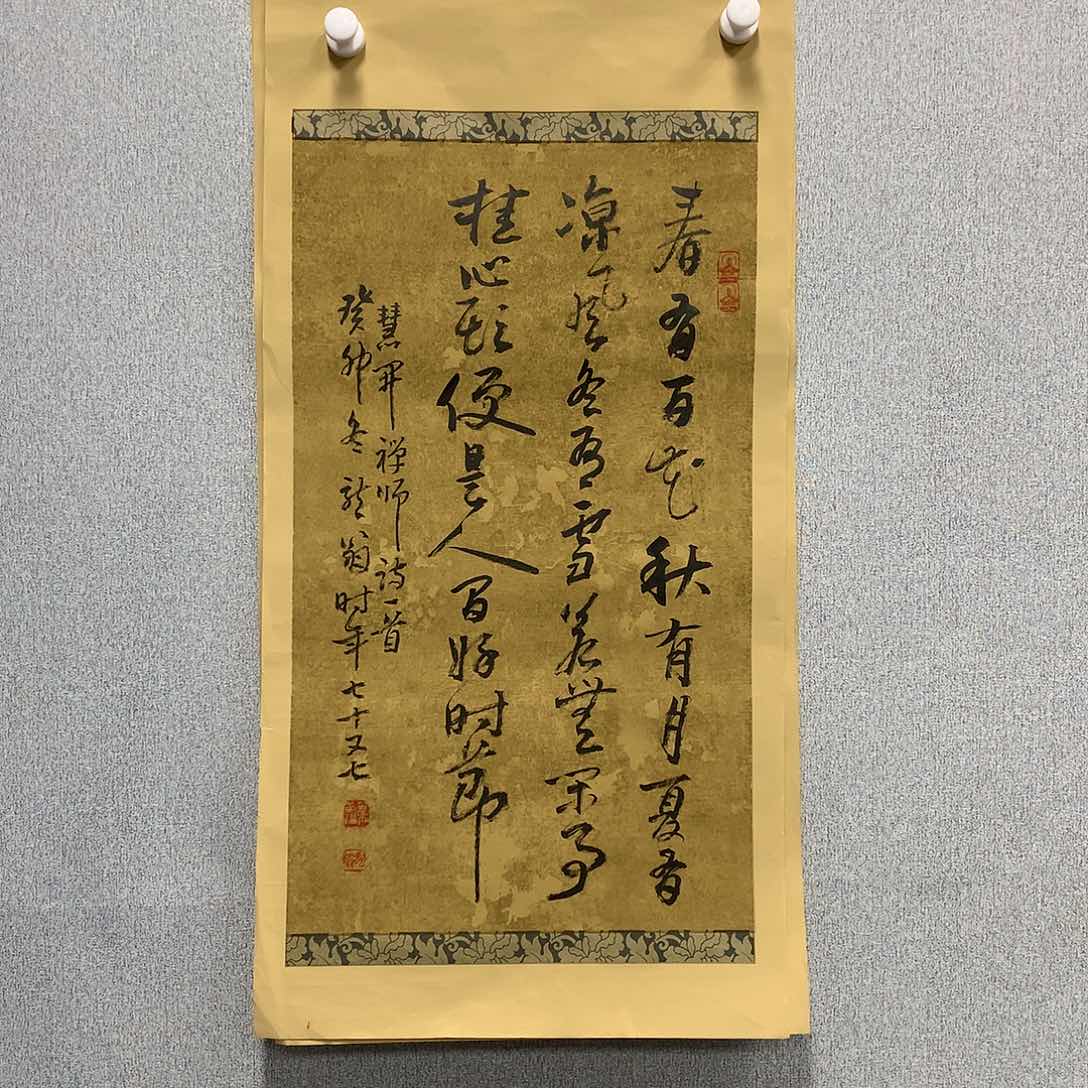 春有百花秋有月夏有
凉風冬有雪若無閑事
挂心頭便是人間好时節
慧開禅师詩一首
癸卯冬龍翁时年七十又七